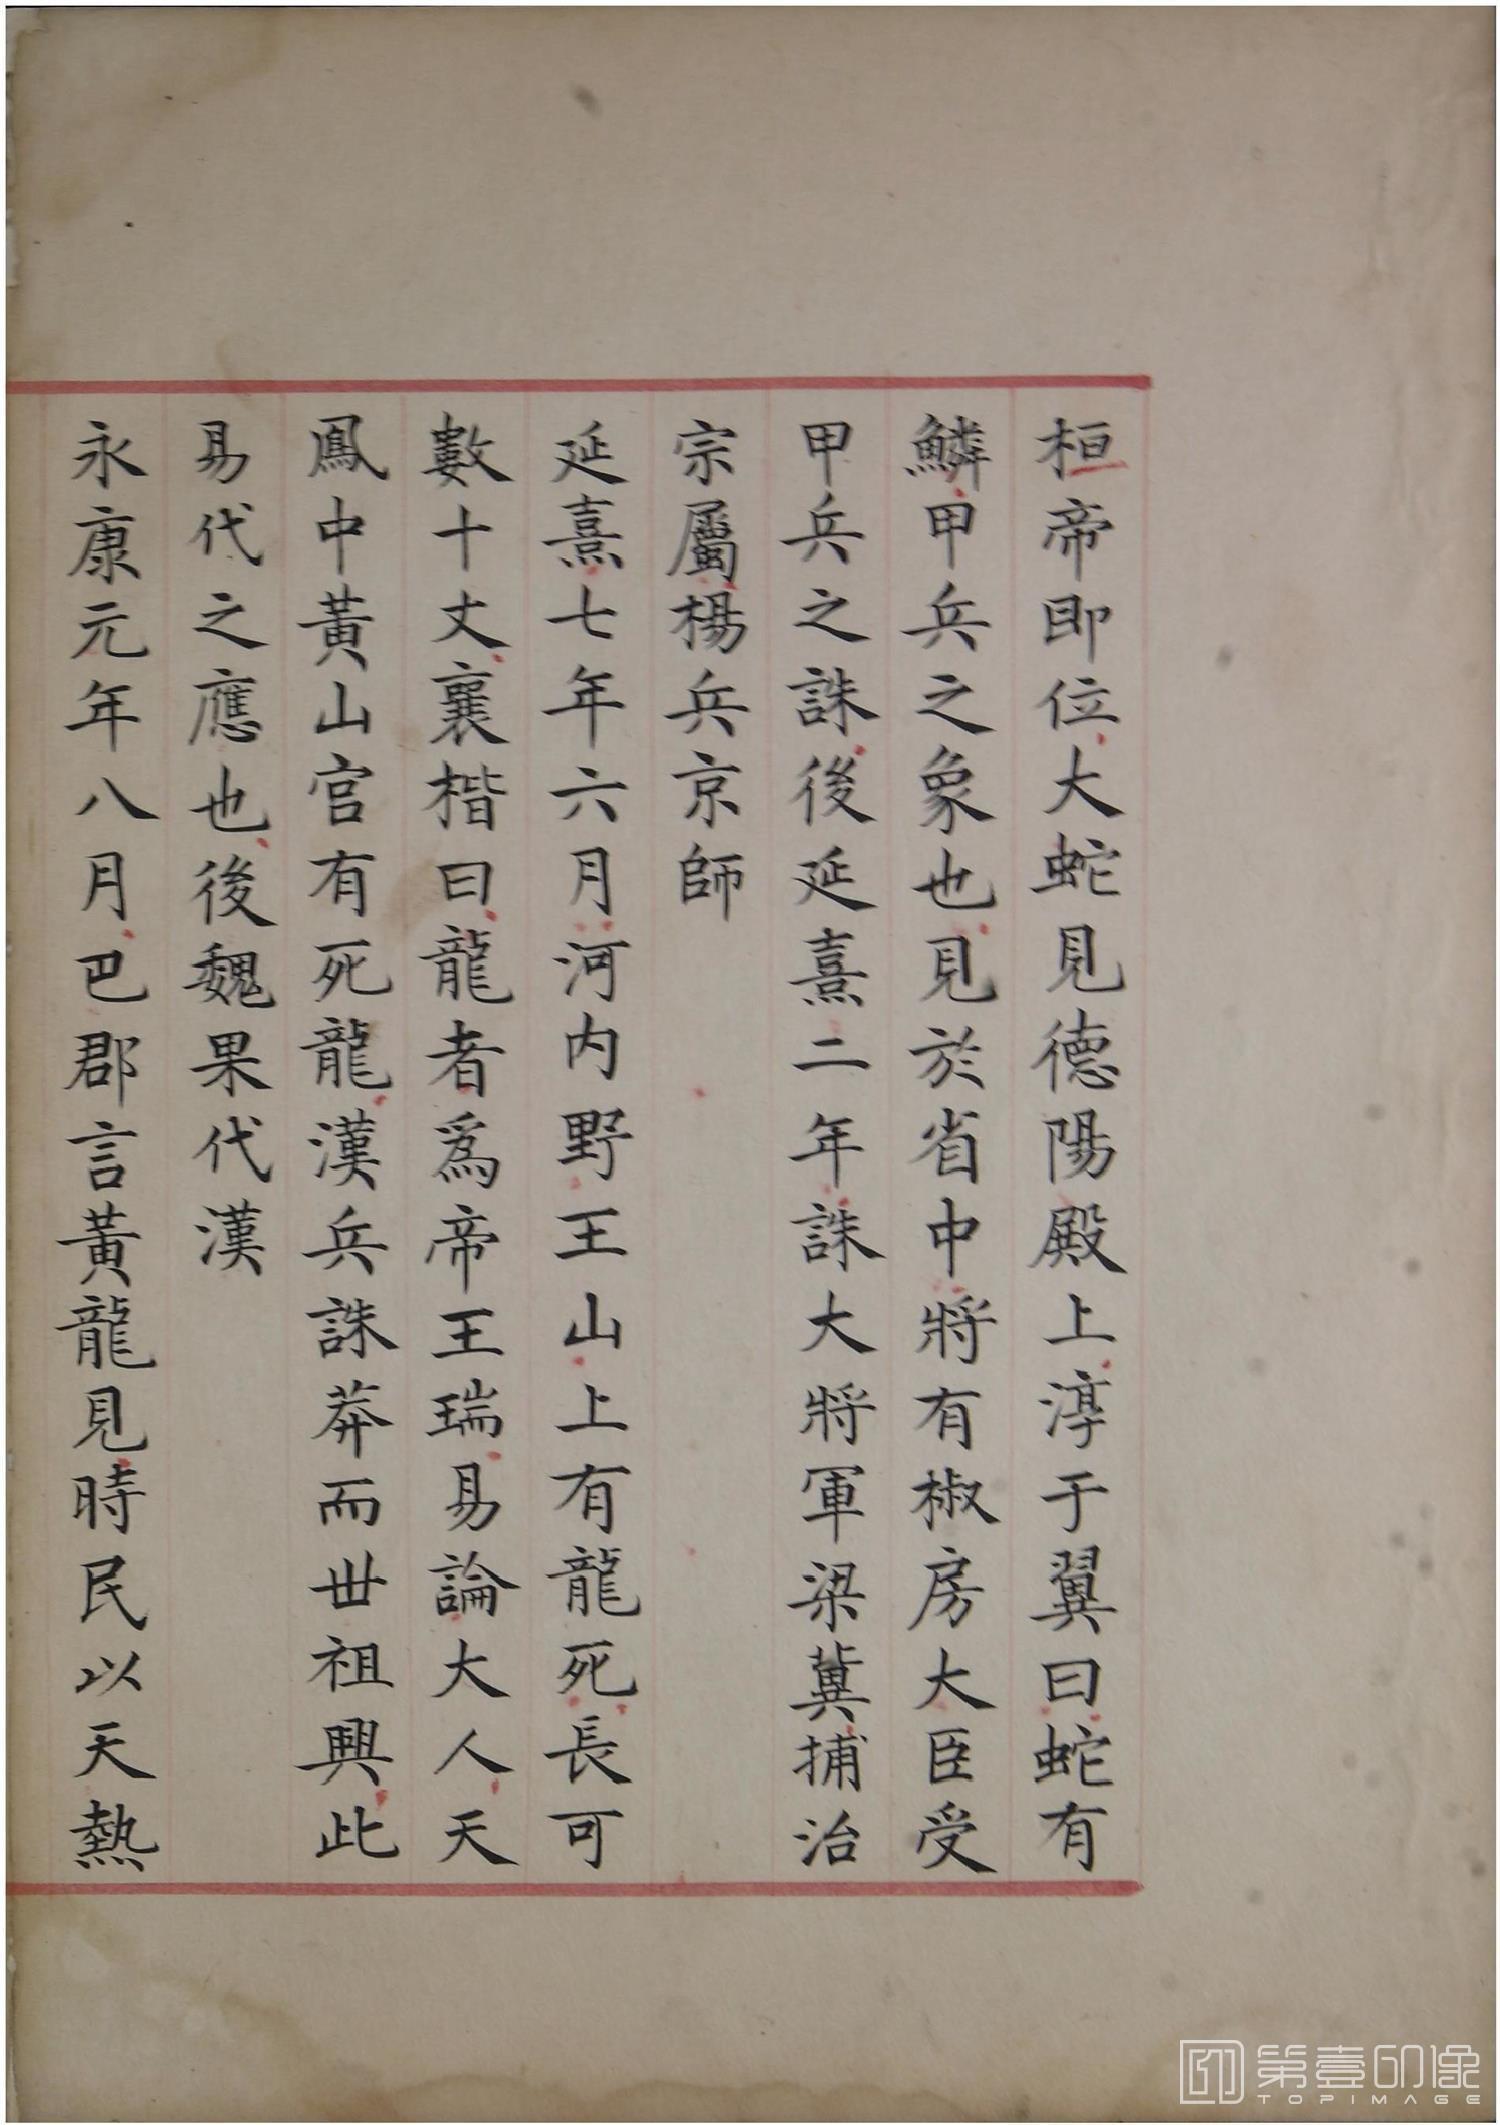 桓帝即位大蛇見德陽殿上淳于翼曰蛇有
鱗甲兵之象也見於省中將有椒房大臣受
甲兵之誅後延熹二年誅大將軍梁冀捕治
宗屬楊兵京師
延熹七年六月河内野王山上有龍死長可
數十丈襄楷曰龍者爲帝王瑞易論大人天
鳳中黃山宮有死龍漢兵誅莽而世祖興此
易代之應也後魏果代漢
永康元年八月巴郡言黃龍見時民以天熱
第壹印像
TOPIMAGE